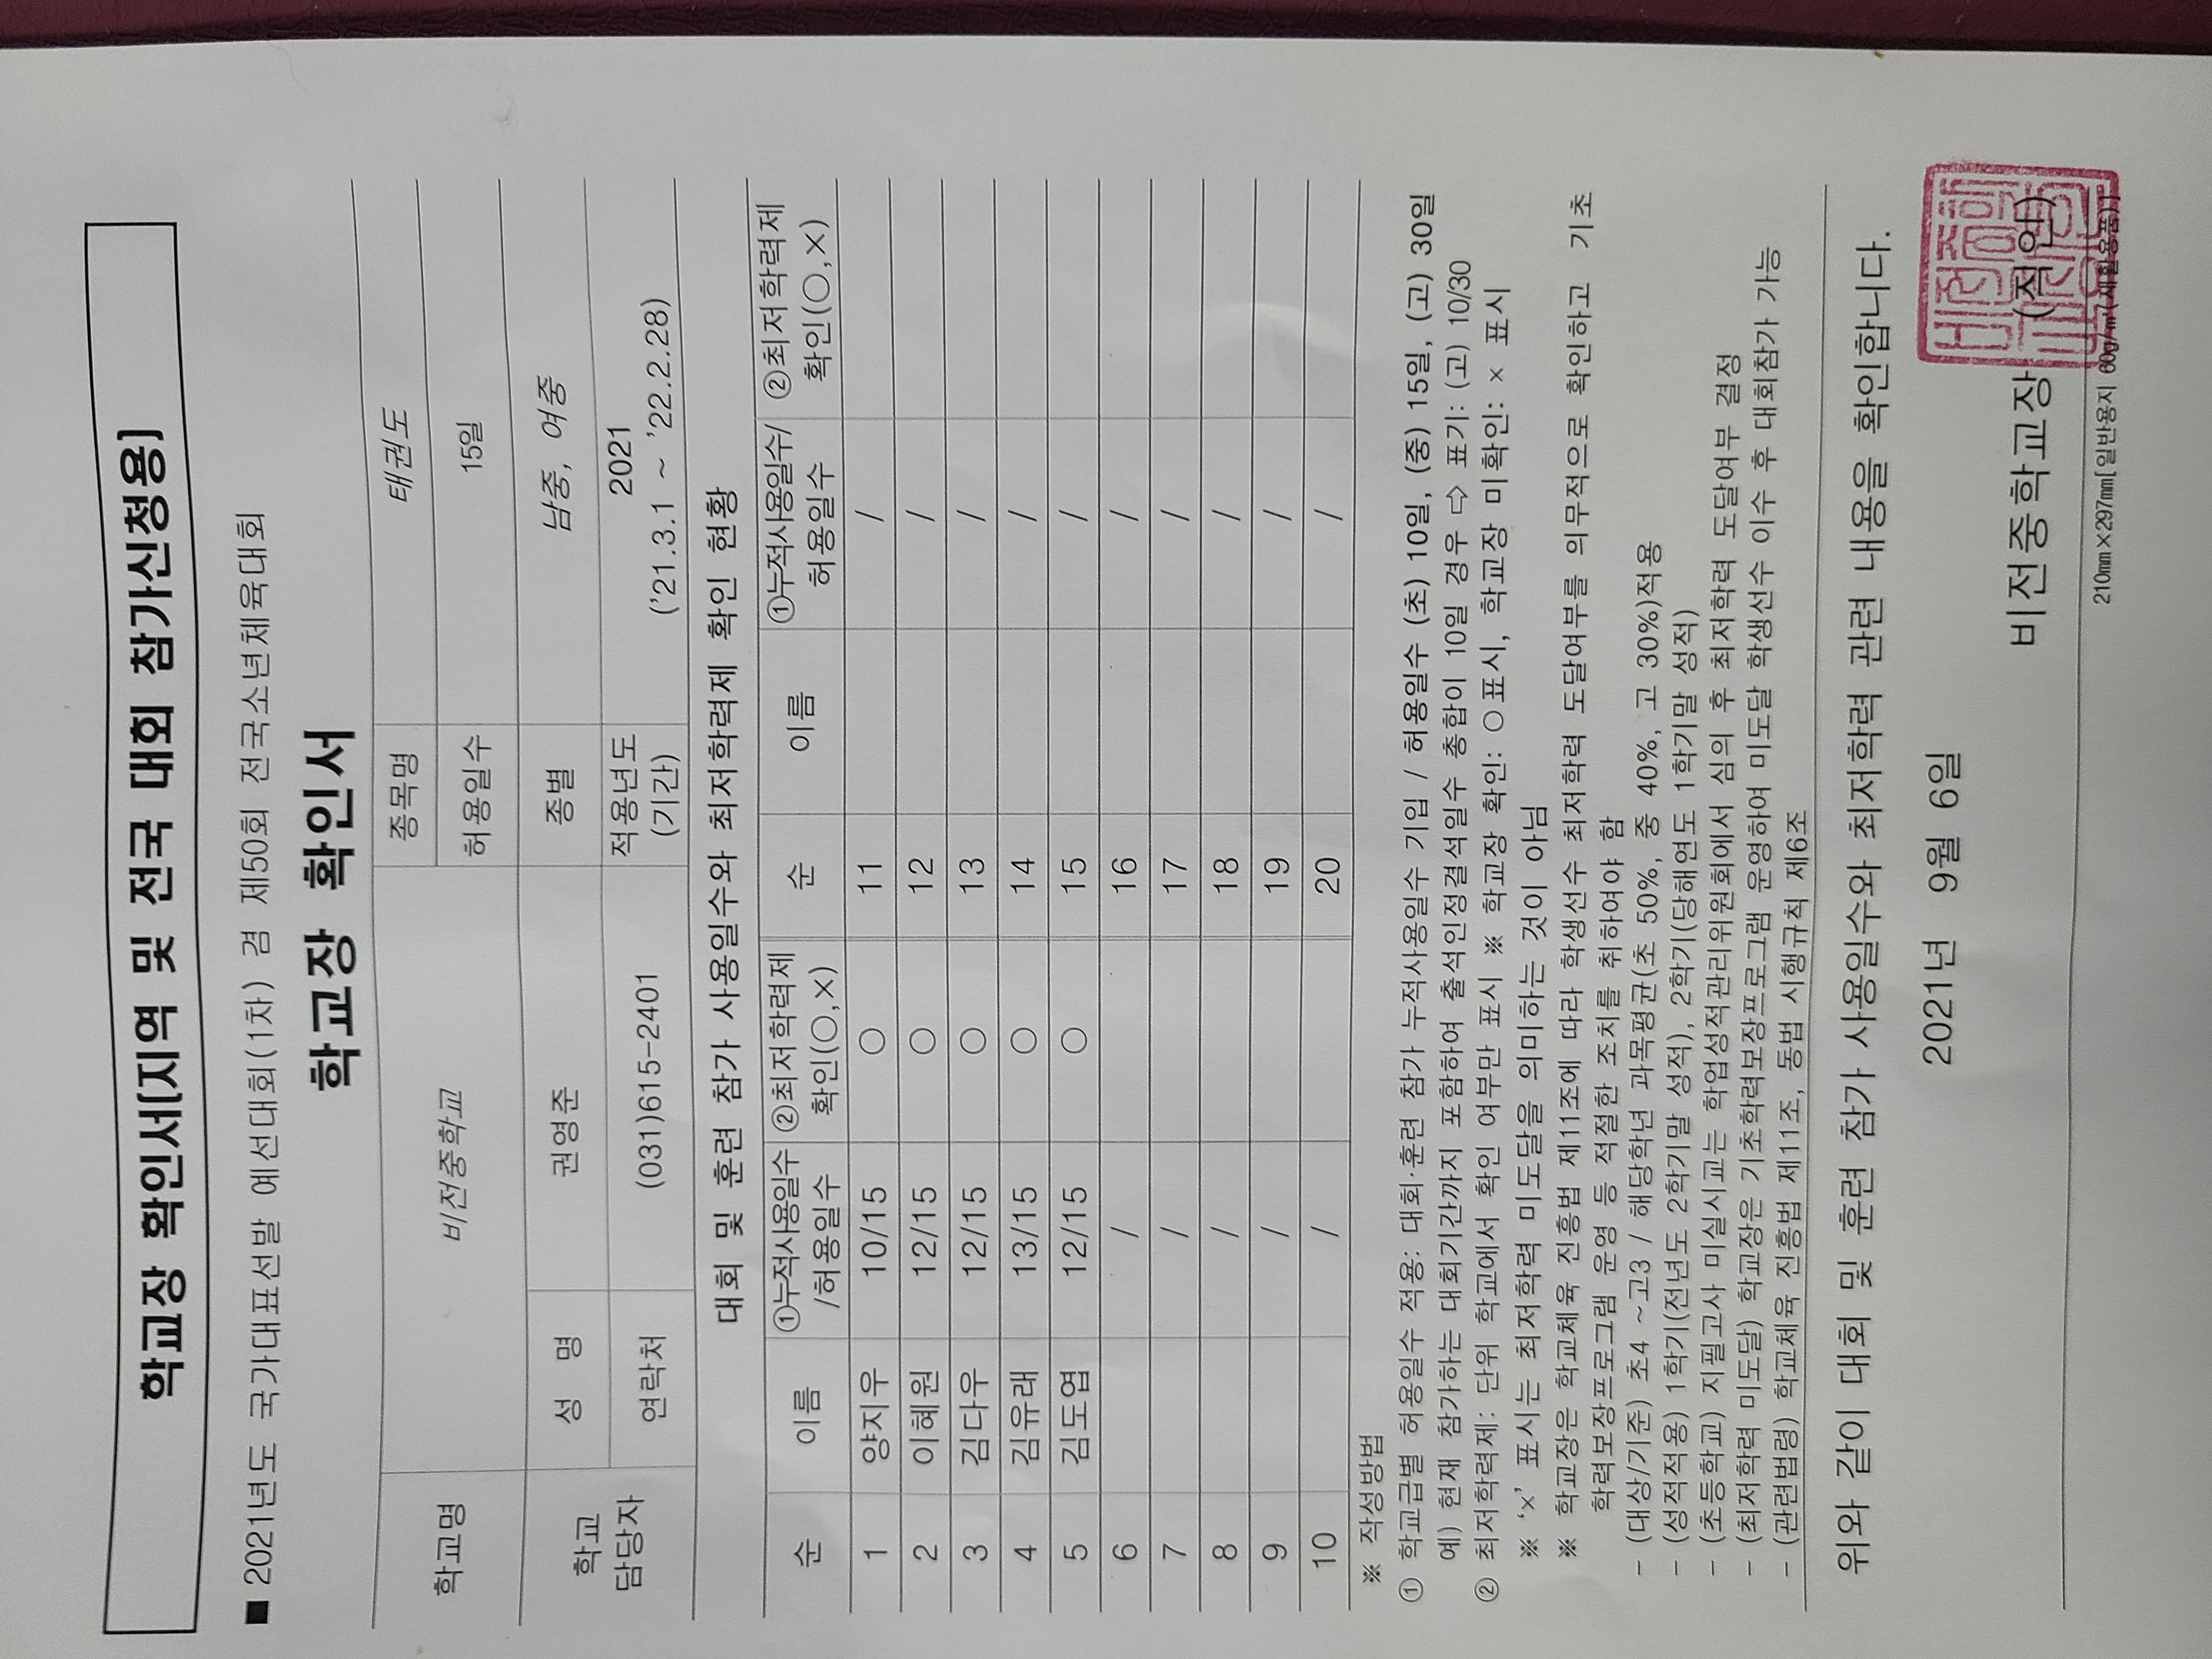 학교장 확인서(지역 및 전국 대회 참가신청용)
■ 2021년도 국가대표선발 예선대회(1차) 겸 제50회 전국소년체육대회
학교장 확인서
학교명 비전중학교 종목명 태권도
허용일수 15일
학교 담당자 성 명 권영준 종별 남중, 여중
연락처 (031)615-2401 적용년도 (기간) 2021
('21.3.1 ~ '22.2.28)
대회 및 훈련 참가 사용일수와 최저학력제 확인 현황
순 이름 ①누적사용일수/허용일수 ②최저학력제 확인(○,×) 순 이름 ①누적사용일수/허용일수 ②최저학력제 확인(○,×)
1 양지우 10/15 ○ 11 /
2 이혜원 12/15 ○ 12 /
3 김다우 12/15 ○ 13 /
4 김유래 13/15 ○ 14 /
5 김도엽 12/15 ○ 15 /
6 / 16 /
7 / 17 /
8 / 18 /
9 / 19 /
10 / 20 /
※ 작성방법
① 학교급별 허용일수 적용: 대회·훈련 참가 누적사용일수 기입 / 허용일수 (초) 10일, (중) 15일, (고) 30일
예) 현재 참가하는 대회기간까지 포함하여 출석인정결석일수 총합이 10일 경우 ⇨ 표기: (고) 10/30
② 최저학력제: 단위 학교에서 확인 여부만 표시 ※ 학교장 확인: ○표시, 학교장 미확인: × 표시
※ 'x' 표시는 최저학력 미도달을 의미하는 것이 아님
※ 학교장은 학교체육 진흥법 제11조에 따라 학생선수 최저학력 도달여부를 의무적으로 확인하고 기초
학력보장프로그램 운영 등 적절한 조치를 취하여야 함
- (대상/기준) 초4 ~고3 / 해당학년 과목평균(초 50%, 중 40%, 고 30%)적용
- (성적적용) 1학기(전년도 2학기말 성적), 2학기(당해연도 1학기말 성적)
- (초등학교) 지필고사 미실시교는 학업성적관리위원회에서 심의 후 최저학력 도달여부 결정
- (최저학력 미도달) 학교장은 기초학력보장프로그램 운영하여 미도달 학생선수 이수 후 대회참가 가능
- (관련법령) 학교체육 진흥법 제11조, 동법 시행규칙 제6조
위와 같이 대회 및 훈련 참가 사용일수와 최저학력 관련 내용을 확인합니다.
2021년 9월 6일
비전중학교장 (직인)
210mm×297mm[일반용지 60g/㎡(재활용품)]